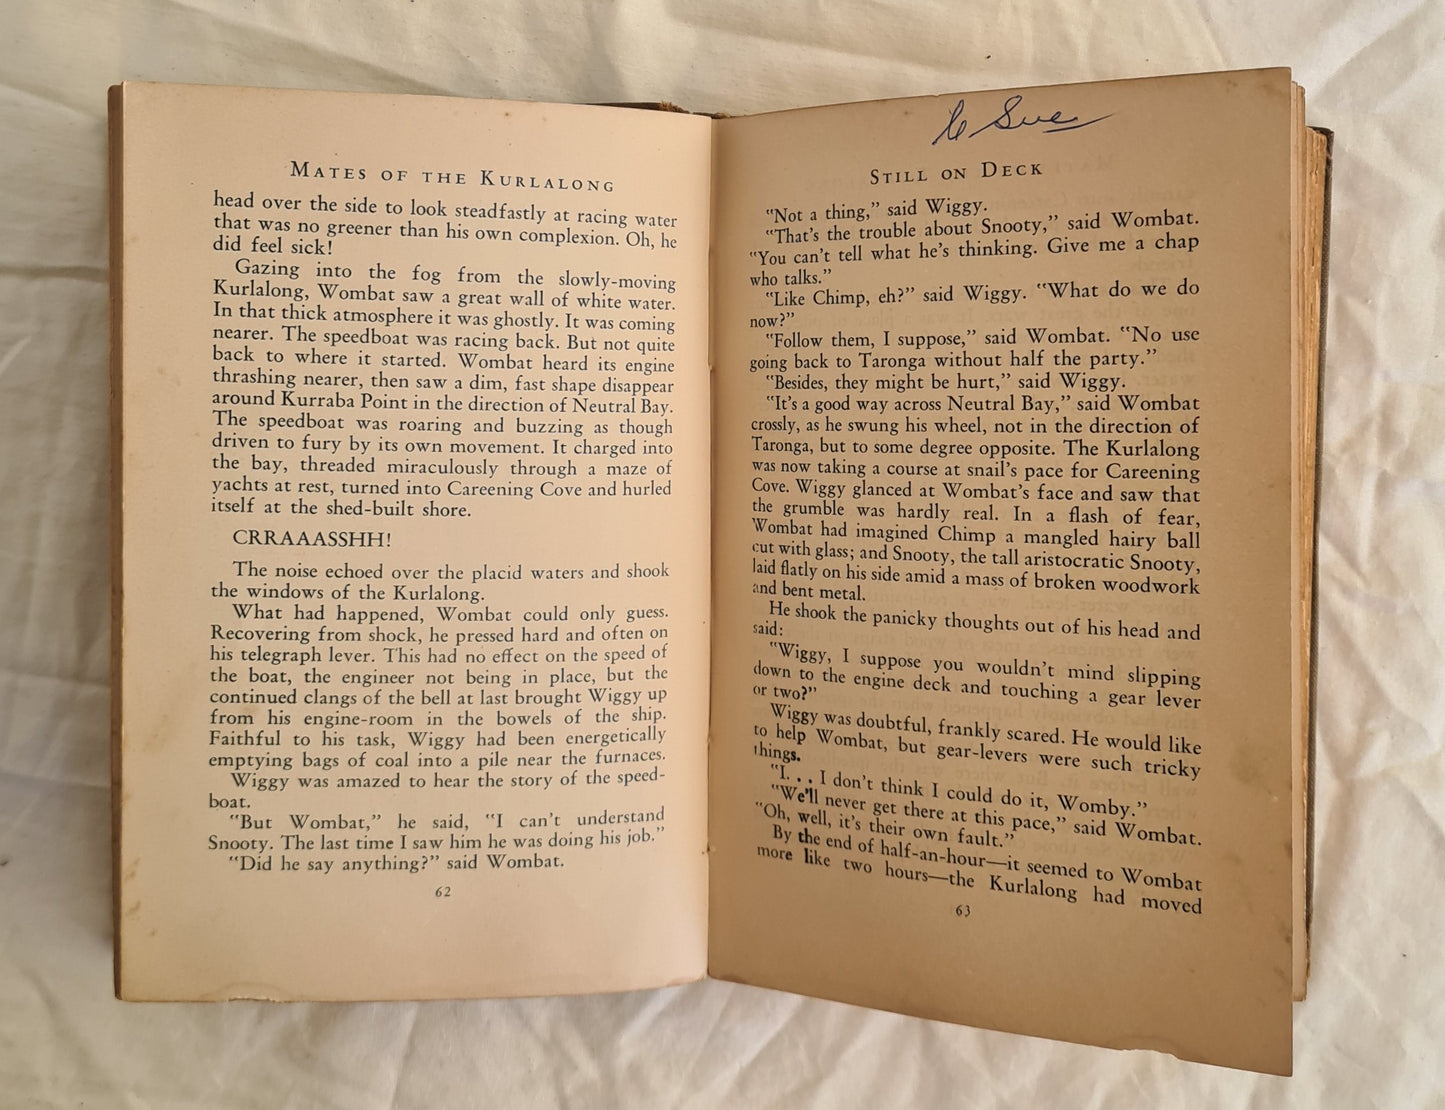 MATES OF THE KURLALONG
head over the side to look steadfastly at racing water
that was no greener than his own complexion. Oh, he
did feel sick!
Gazing into the fog from the slowly-moving
Kurlalong, Wombat saw a great wall of white water.
In that thick atmosphere it was ghostly. It was coming
nearer. The speedboat was racing back. But not quite
back to where it started. Wombat heard its engine
thrashing nearer, then saw a dim, fast shape disappear
around Kurraba Point in the direction of Neutral Bay.
The speedboat was roaring and buzzing as though
driven to fury by its own movement. It charged into
the bay, threaded miraculously through a maze of
yachts at rest, turned into Careening Cove and hurled
itself at the shed-built shore.
CRRAAASSHH!
The noise echoed over the placid waters and shook
the windows of the Kurlalong.
What had happened, Wombat could only guess.
Recovering from shock, he pressed hard and often on
his telegraph lever. This had no effect on the speed of
the boat, the engineer not being in place, but the
continued clangs of the bell at last brought Wiggy up
from his engine-room in the bowels of the ship.
Faithful to his task, Wiggy had been energetically
emptying bags of coal into a pile near the furnaces.
Wiggy was amazed to hear the story of the speed-
boat.
"But Wombat," he said, "I can't understand
Snooty. The last time I saw him he was doing his job."
"Did he say anything?" said Wombat.
62
Sue
STILL ON DECK
"Not a thing," said Wiggy.
"That's the trouble about Snooty," said Wombat.
"You can't tell what he's thinking. Give me a chap
who talks."
"Like Chimp, eh?" said Wiggy. "What do we do
now?"
"Follow them, I suppose," said Wombat. "No use
going back to Taronga without half the party."
"Besides, they might be hurt," said Wiggy.
"It's a good way across Neutral Bay," said Wombat
crossly, as he swung his wheel, not in the direction of
Taronga, but to some degree opposite. The Kurlalong
was now taking a course at snail's pace for Careening
Cove. Wiggy glanced at Wombat's face and saw that
the grumble was hardly real. In a flash of fear,
Wombat had imagined Chimp a mangled hairy ball
cut with glass; and Snooty, the tall aristocratic Snooty,
laid flatly on his side amid a mass of broken woodwork
and bent metal.
He shook the panicky thoughts out of his head and
said:
"Wiggy, I suppose you wouldn't mind slipping
down to the engine deck and touching a gear lever
or two?"
Wiggy was doubtful, frankly scared. He would like
to help Wombat, but gear-levers were such tricky
things.
"I. . . I don't think I could do it, Womby."
"We'll never get there at this pace," said Wombat.
"Oh, well, it's their own fault."
By the end of half-an-hour—it seemed to Wombat
more like two hours—the Kurlalong had moved
63